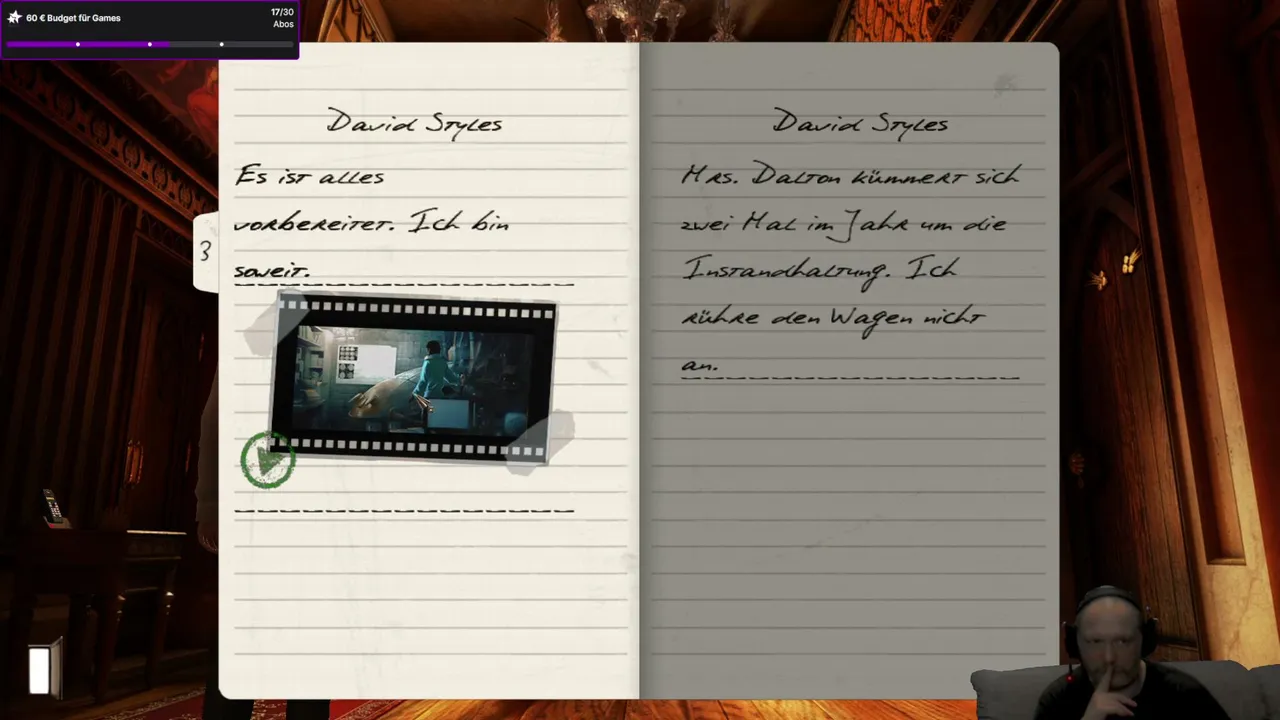 60 € Budget für Games
17/30
Abos
3
David Styles
Es ist alles
vorbereitet. Ich bin
soweit.
David Styles
Mrs. Dalton kümmert sich
zwei Mal im Jahr um die
Instandhaltung. Ich
rühre den Wagen nicht
an.